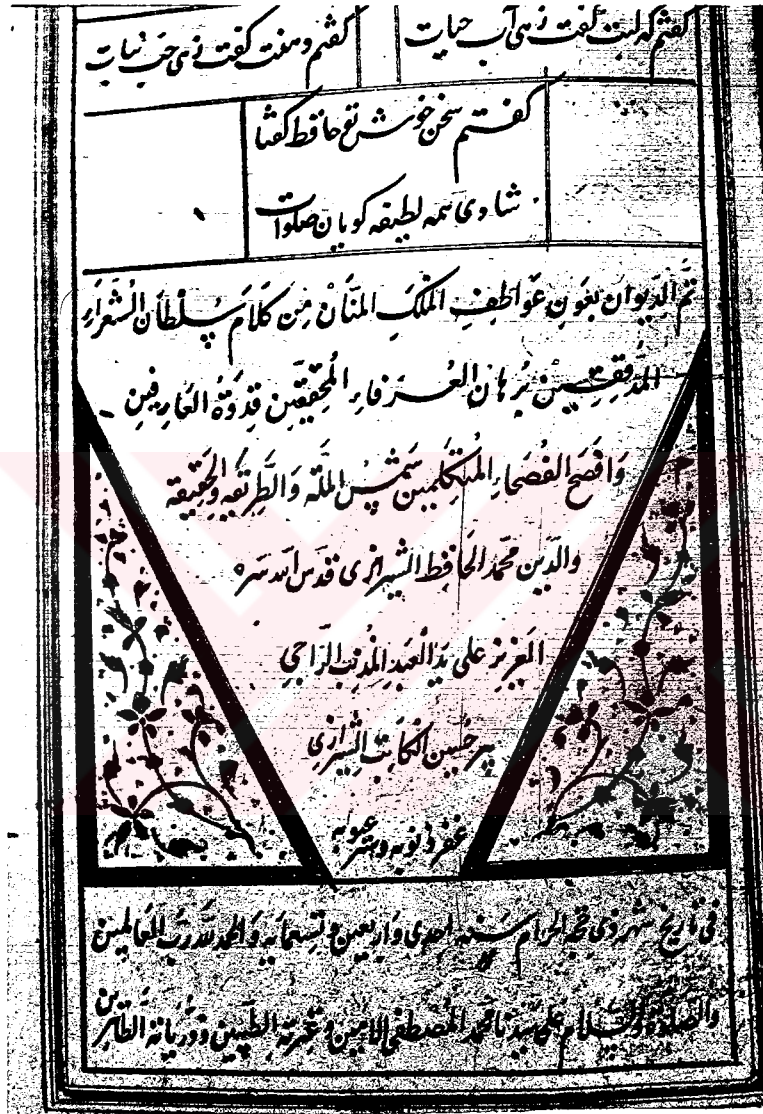 گفتم که لبت گفت زهی آب حیات
گفتم دهنت گفت زهی حب نبات
گفتم سخن خوش تو حافظ گفتا
شادی همه لطیفه گویان صلوات
تم الدیوان بعون عواطف الملک المنان من کلام سلطان الشعراء
المدققین برهان العرفاء المحققین قدوة العارفین
وافصح الفصحاء المتکلمین شمس الملة والطریقه والحقیقه
والدین محمد الحافظ الشیرازی قدس الله سره
العزیز علی ید العبد المذنب الراجی
پیر حسین الکاتب الشیرازی
غفر ذنوبه وستر عیوبه
فی تاریخ شهر ذی حجه الحرام سنه احدی واربعین وتسعمایه والحمد لله رب العالمین
والصلوة والسلام علی سیدنا محمد المصطفی الامین وعترته الطیبین وذریاته الطاهرین